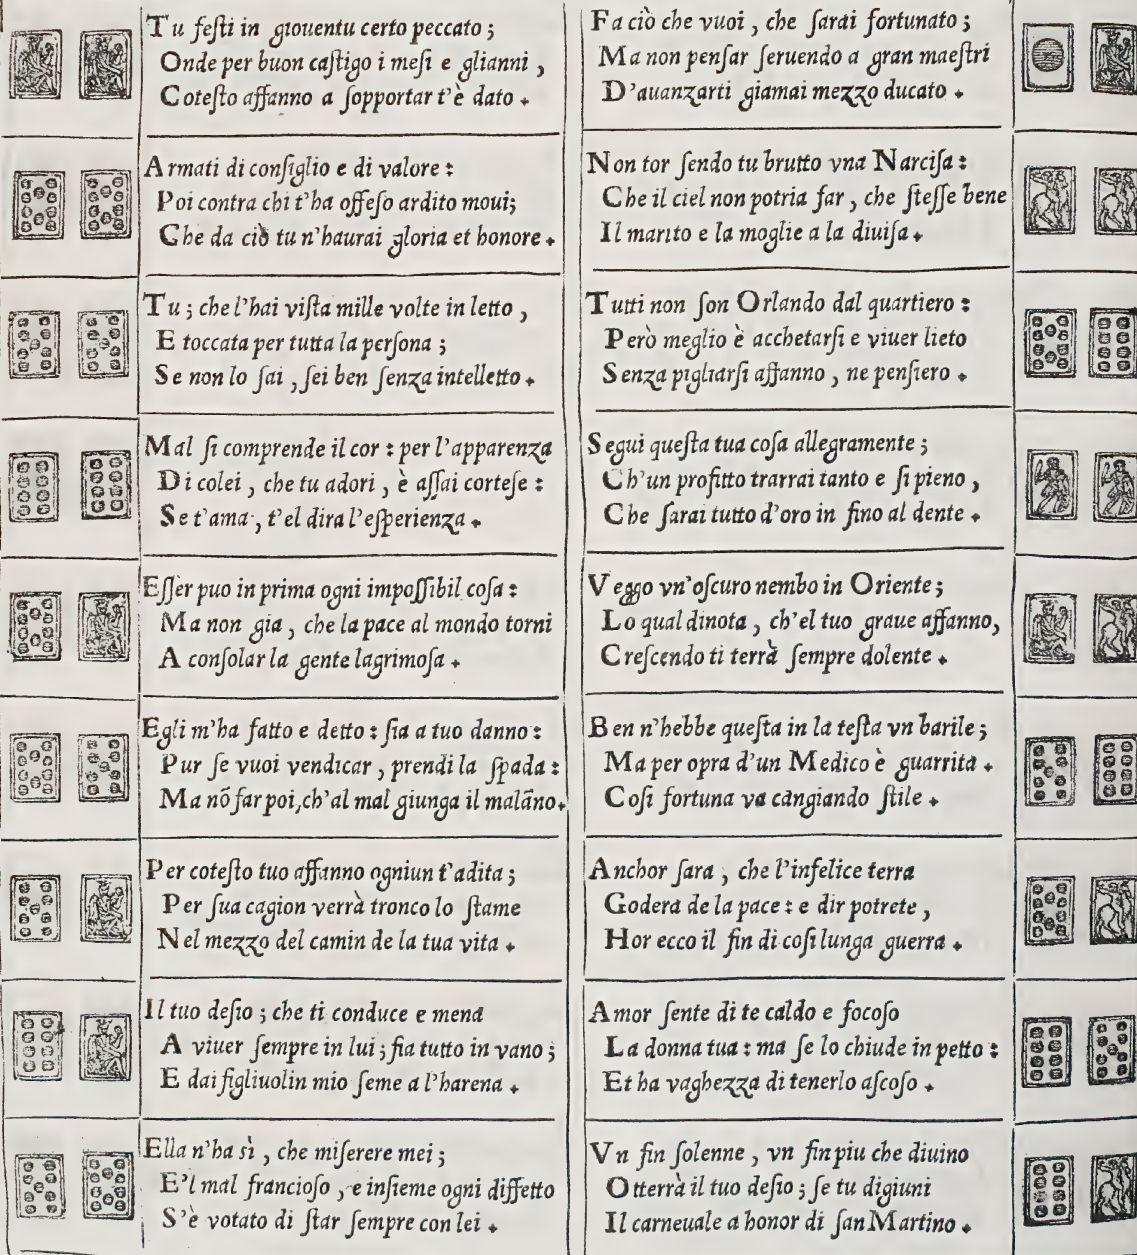 Tu feſti in giouentu certo peccato ;
Onde per buon caſtigo i meſi e glianni ,
Coteſto affanno a ſopportar t'è dato .
Armati di conſiglio e di valore :
Poi contra chi t'ha offeſo ardito moui;
Che da ciò tu n'haurai gloria et honore .
Tu ; che l'hai viſta mille volte in letto ,
E toccata per tutta la perſona ;
Se non lo ſai , ſei ben ſenza intelletto .
Mal ſi comprende il cor : per l'apparenza
Di colei , che tu adori , è aſſai corteſe :
Se t'ama , t'el dira l'eſperienza .
Eſſer puo in prima ogni impoſſibil coſa :
Ma non gia , che la pace al mondo torni
A conſolar la gente lagrimoſa .
Egli m'ha fatto e detto : ſia a tuo danno :
Pur ſe vuoi vendicar , prendi la ſpada :
Ma nō far poi,ch'al mal giunga il malāno.
Per coteſto tuo affanno ogniun t'adita ;
Per ſua cagion verrà tronco lo ſtame
Nel mezzo del camin de la tua vita .
Il tuo deſio ; che ti conduce e mena
A viuer ſempre in lui ; fia tutto in vano ;
E dai figliuolin mio ſeme a l'harena .
Ella n'ha sì , che miſerere mei ;
E'l mal francioſo , e inſieme ogni diffetto
S'è votato di ſtar ſempre con lei .
Fa ciò che vuoi , che ſarai fortunato ;
Ma non penſar ſeruendo a gran maeſtri
D'auanzarti giamai mezzo ducato .
Non tor ſendo tu brutto vna Narciſa :
Che il ciel non potria far , che ſteſſe bene
Il marito e la moglie a la diuiſa .
Tutti non ſon Orlando dal quartiero :
Però meglio è acchetarſi e viuer lieto
Senza pigliarſi affanno , ne penſiero .
Segui queſta tua coſa allegramente ;
Ch'un profitto trarrai tanto e ſi pieno ,
Che ſarai tutto d'oro in fino al dente .
Veggo vn'oſcuro nembo in Oriente ;
Lo qual dinota , ch'el tuo graue affanno,
Creſcendo ti terrà ſempre dolente .
Ben n'hebbe queſta in la teſta vn barile ;
Ma per opra d'un Medico è guarrita .
Coſi fortuna va cangiando ſtile .
Anchor ſara , che l'infelice terra
Godera de la pace : e dir potrete ,
Hor ecco il fin di coſi lunga guerra .
Amor ſente di te caldo e focoſo
La donna tua : ma ſe lo chiude in petto :
Et ha vaghezza di tenerlo aſcoſo .
Vn fin ſolenne , vn fin piu che diuino
Otterrà il tuo deſio ; ſe tu digiuni
Il carneuale a honor di ſan Martino .